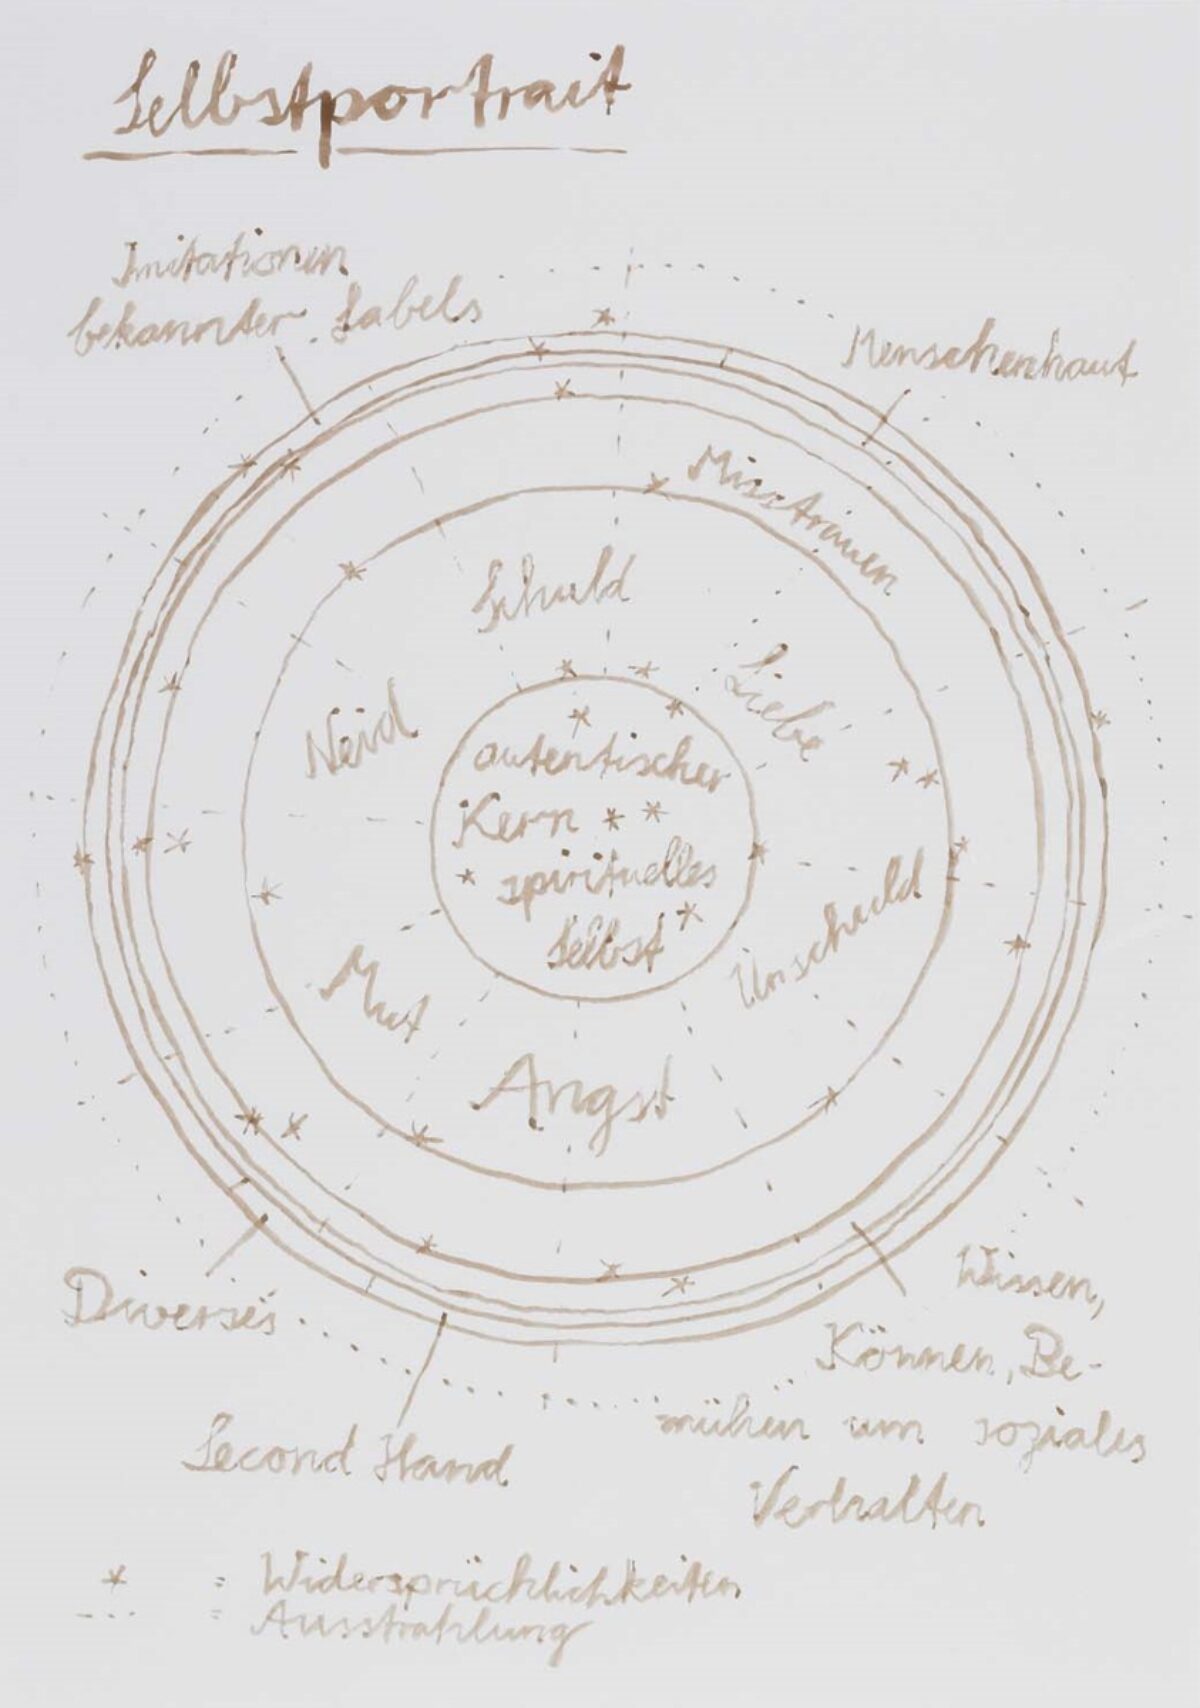 Selbstportrait
Imitationen
bekannter Labels
Menschenhaut
Misstrauen
Schuld
Liebe
Neid
autentischer
Kern
spirituelles
Selbst
Unschuld
Mut
Angst
Diverses
Wissen,
Können, Be-
mühen um soziales
Verhalten
Second Hand
* = Widersprüchlichkeiten
--... = Ausstrahlung